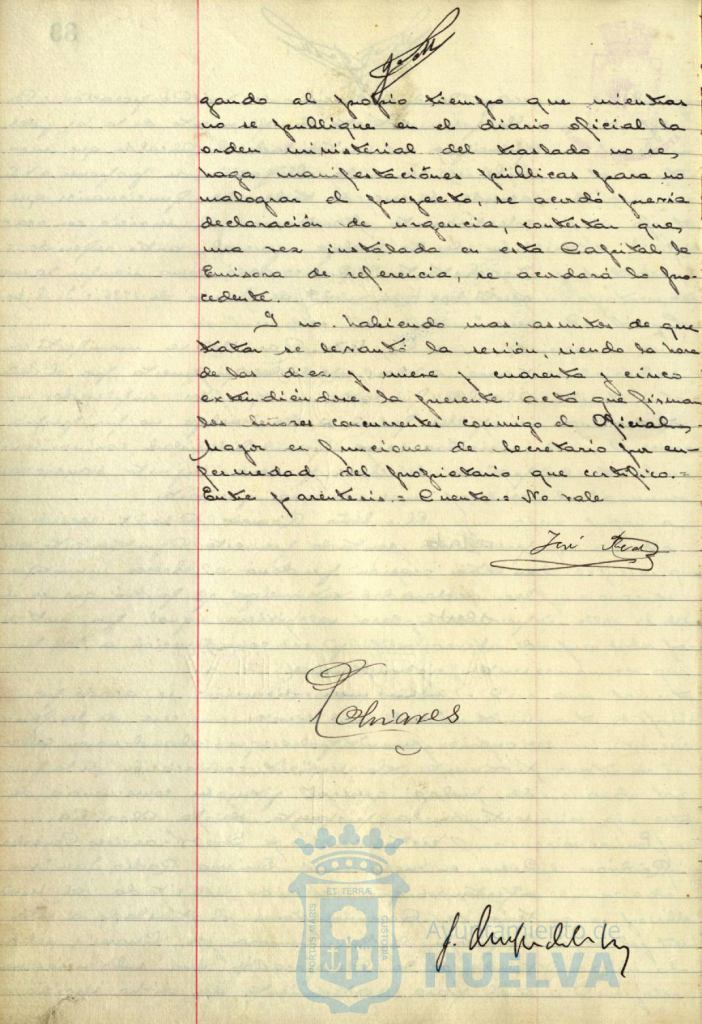 gando al propio tiempo que mientras
no se publique en el diario oficial la
orden ministerial del traslado no se
haga manifestaciónes públicas para no
malograr el proyecto, se acordó previa
declaración de urgencia, contestar que
una vez instalada en esta Capital la
Emisora de referencia, se acordará lo pro-
cedente.
Y no habiendo mas asuntos de que
tratar se levantó la sesión, siendo la hora
de las diez y nueve y cuarenta y cinco
extendiéndose la presente acta que firman
los señores concurrentes conmigo el Oficial
Mayor en funciones de Secretario por en-
fermedad del propietario que certifico.=
Entre parentesis.= Cuenta.= No vale
José
Olivares
ET TERRÆ
PORTUS MARIS
CUSTODIA
Ayuntamiento de
HUELVA